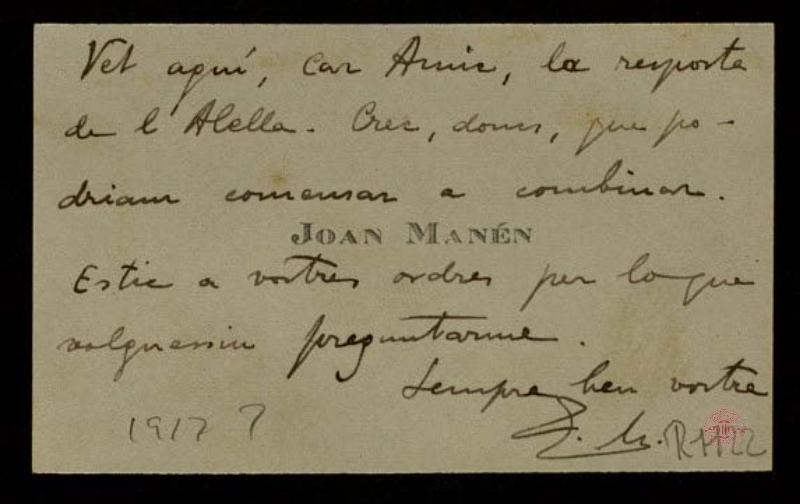 Vet aquí, car Amic, la resposta
de l'Alella. Crec, doncs, que po-
driam comensar a combinar.
JOAN MANÉN
Estic a vostres ordres per lo que
volguessiu preguntarme.
Sempre ben vostre
J. M.
1917?